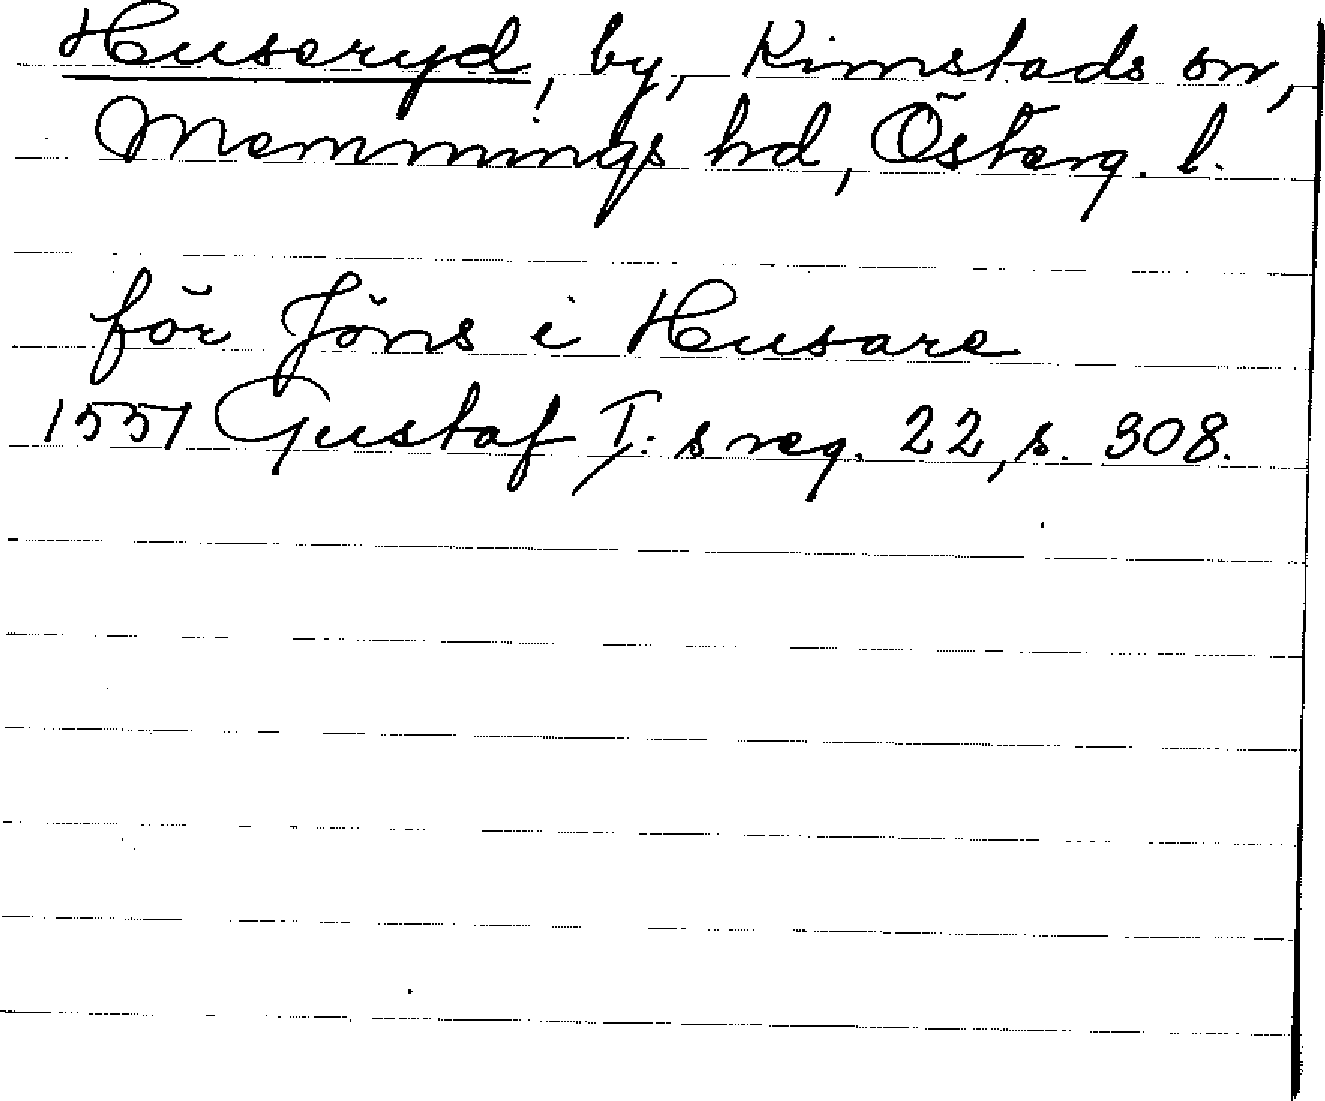 Huseryd, by, Kimstads sn,
Memmings hd, Österg. l.
för Jöns i Husare
1551 Gustaf I:s reg. 22, s. 308.